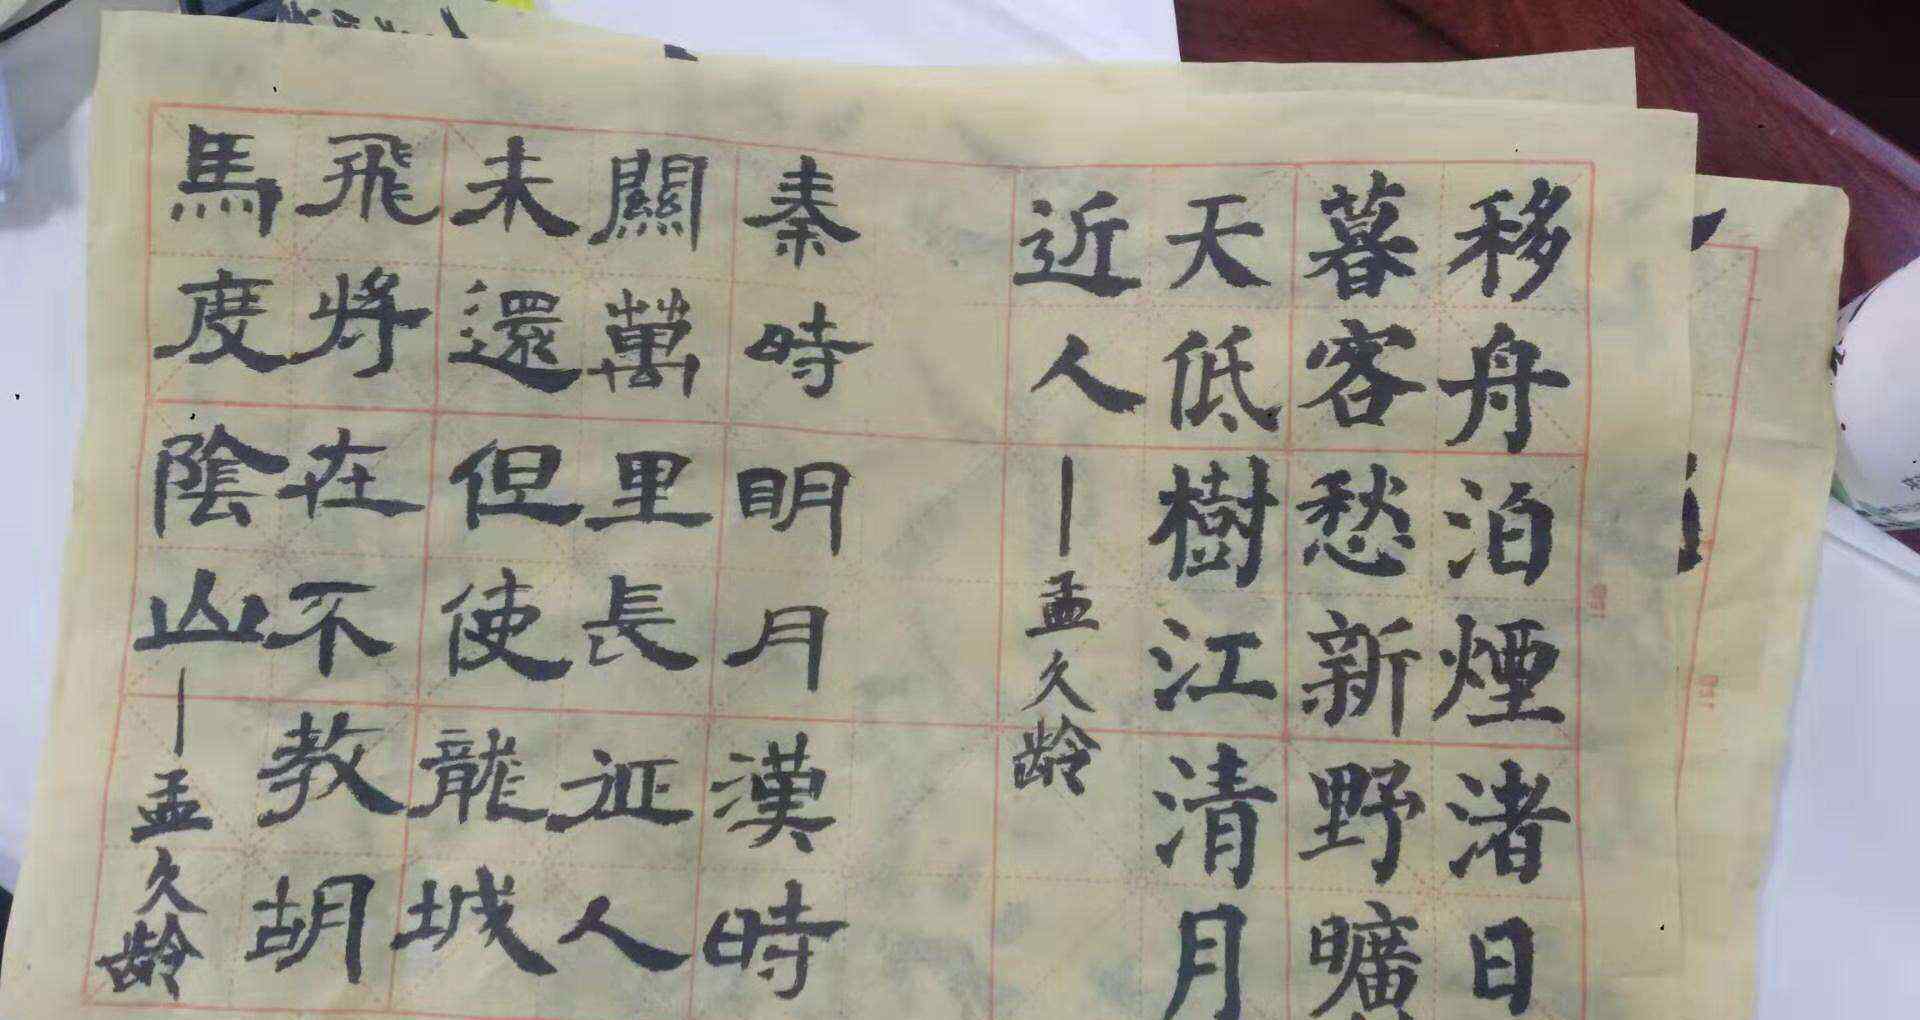 移舟泊煙渚日
暮客愁新野曠
天低樹江清月
近人—孟久龄
秦時明月漢時
關萬里長征人
未還但使龍城
飛將在不教胡
馬度陰山—孟久龄